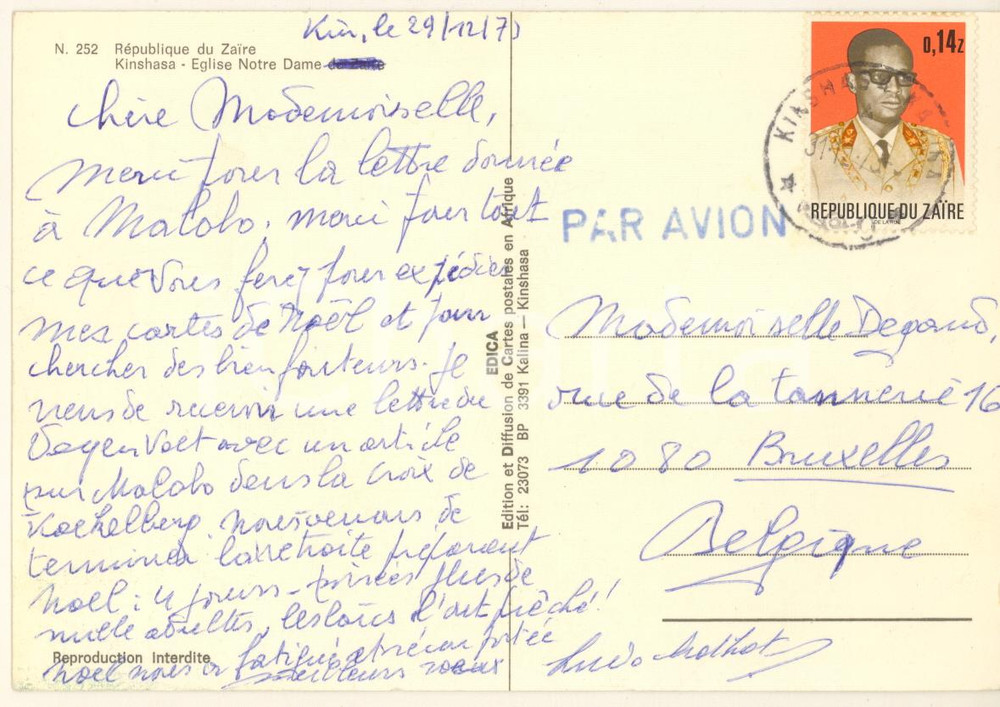 Kin, le 29/12/73
N. 252 République du Zaïre
Kinshasa - Eglise Notre Dame du Zaïre
Chère Mademoiselle,
Merci pour la lettre donnée
à Malolo. Merci pour tout
ce que vous ferez pour expédier
mes cartes de Noël et pour
chercher des bienfaiteurs. Je
viens de recevoir une lettre du
Doyen Volt avec un article
sur Malolo dans la croix de
Koekelberg. Nous venons de
terminer la retraite préparant
Noël : 4 jours - soirées plus de
mille adultes, les laïcs l'ont prêché!
Noël nous a fatigué et réconfortée
meilleurs voeux
Reproduction Interdite
EDICA
Edition et Diffusion de Cartes postales en Afrique
Tél: 23073 BP 3391 Kalina — Kinshasa
0,14z
REPUBLIQUE DU ZAÏRE
DE LA RUE
KINSHASA
PAR AVION
Mademoiselle Degand,
rue de la tannerie 16
1080 Bruxelles
Belgique